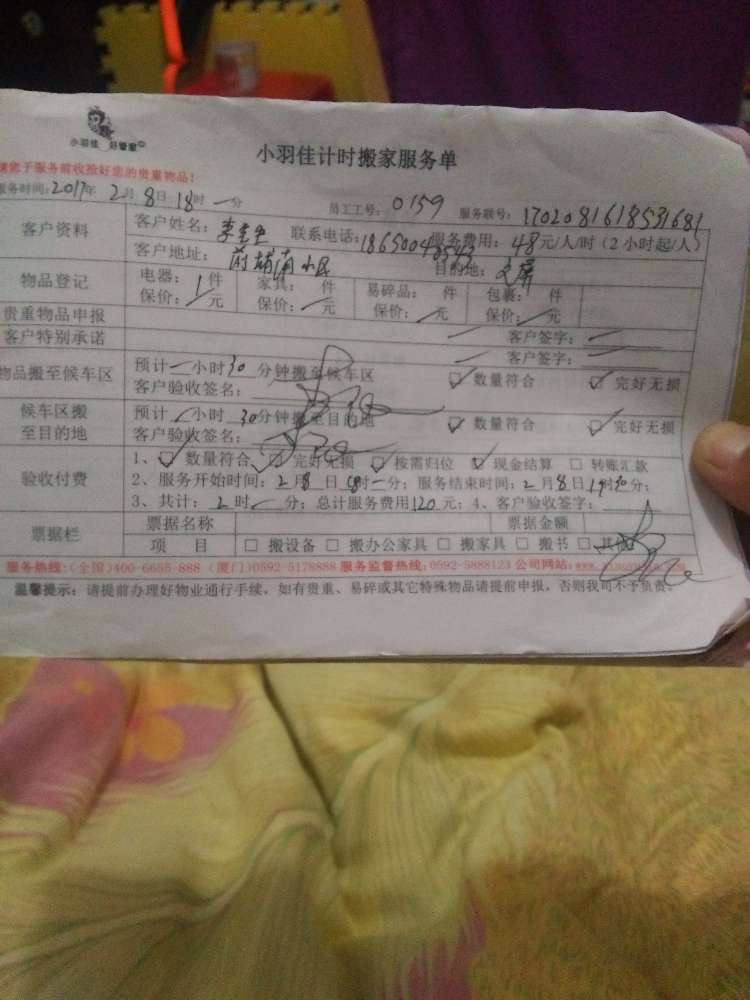 小羽佳 好管家
小羽佳计时搬家服务单
请您于服务前收捡好您的贵重物品！
服务时间：2017年 2月 8日 18时 一分 员工工号：0159 服务联号：1702081618531681
客户资料 客户姓名：李 联系电话： 服务费用：48元/人/时（2小时起/人）
客户地址：前埔南小区 目的地：文屏
物品登记 电器：1件 家具： 件 易碎品： 件 包裹： 件
保价：/元 保价：/元 保价：/元 保价：/元
贵重物品申报 客户签字：
客户特别承诺 客户签字：
物品搬至候车区 预计一小时30分钟搬至候车区 ☑数量符合 ☑完好无损
客户验收签名：
候车区搬至目的地 预计/小时30分钟搬至目的地 ☑数量符合 ☑完好无损
客户验收签名：
验收付费 1、☑数量符合 ☑完好无损 ☑按需归位 ☑现金结算 □转账汇款
2、服务开始时间：2月8日18时一分；服务结束时间：2月8日19时30分；
3、共计：2时一分；总计服务费用120元；4、客户验收签字：
票据栏 票据名称 票据金额
项 目 □搬设备 □搬办公家具 □搬家具 □搬书 □其他
服务热线：(全国)400-6655-888 (厦门)0592-5178888 服务监督热线：0592-5888123 公司网站：
温馨提示：请提前办理好物业通行手续，如有贵重、易碎或其它特殊物品请提前申报，否则我司不予负责。